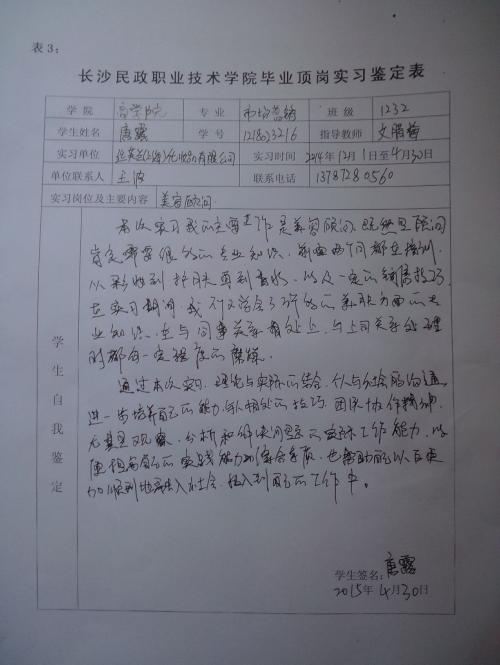 表3：
长沙民政职业技术学院毕业顶岗实习鉴定表
学院 商学院 专业 市场营销 班级 1232
学生姓名 唐露 学号 1218023216 指导教师 文腊梅
实习单位 (上海)化妆品有限公司 实习时间 2014年12月1日至4月30日
单位联系人 王波 联系电话 13787280560
实习岗位及主要内容 美容顾问
本次实习我的主要工作是美容顾问，既然是顾问
肯定需要很多的专业知识，前面两个月都在培训，
从彩妆到护肤再到香水，以及一定的销售技巧，
在实习期间我不仅学会了许多的美肤方面的专
业知识，在与同事关系相处上，与上司关系处理
时都有一定程度的磨练。
通过本次实习，理论与实际的结合、个人与社会的沟通，
进一步培养自己的能力、与人相处的技巧、团队协作精神，
尤其是观察、分析和解决问题的实际工作能力，以
便提高自己的实践能力和综合素质，也帮助自己以后更
加顺利地融入社会，投入到自己的工作中。
学生自我鉴定
学生签名：唐露
2015年4月30日